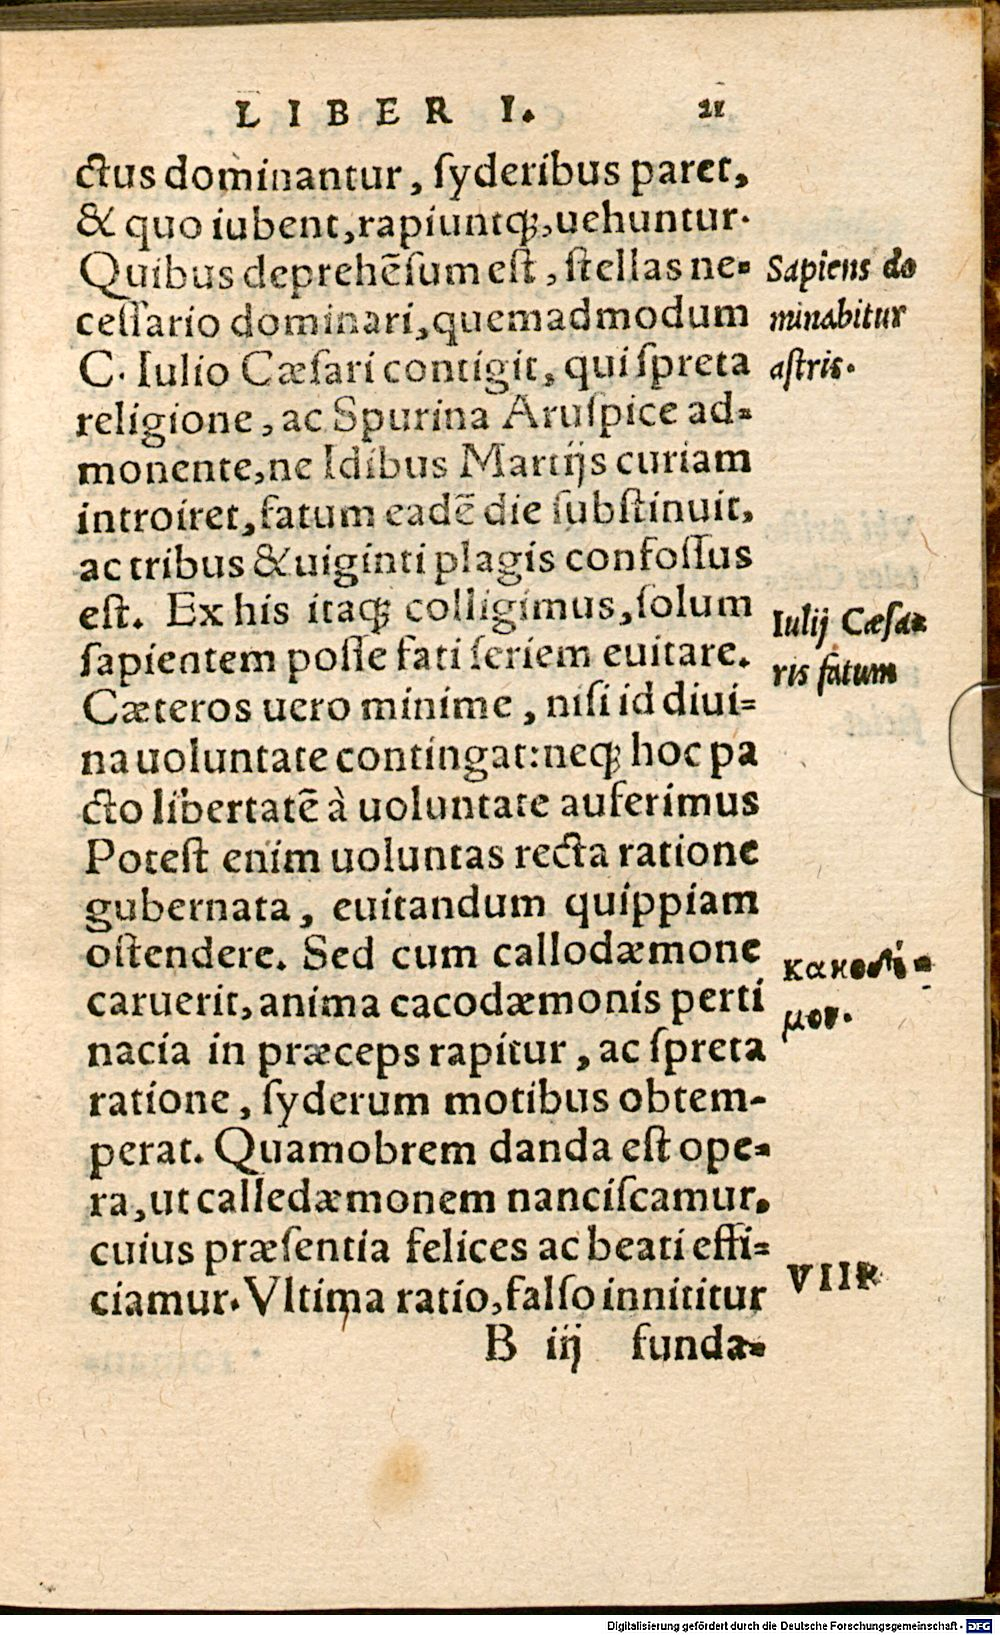 LIBER I. 21
ctus dominantur, ſyderibus paret,
& quo iubent, rapiuntq́;, uehuntur.
Quibus deprehẽſum eſt, ſtellas ne-
ceſſario dominari, quemadmodum
C. Iulio Cæſari contigit, qui ſpreta
religione, ac Spurina Aruſpice ad-
monente, ne Idibus Martijs curiam
introiret, fatum eadẽ die ſubſtinuit,
ac tribus & uiginti plagis confoſſus
eſt. Ex his itaq; colligimus, ſolum
ſapientem poſſe fati ſeriem euitare.
Cæteros uero minime, niſi id diui-
na uoluntate contingat: neq; hoc pa
cto libertatẽ à uoluntate auferimus
Poteſt enim uoluntas recta ratione
gubernata, euitandum quippiam
oſtendere. Sed cum callodæmone
caruerit, anima cacodæmonis perti
nacia in præceps rapitur, ac ſpreta
ratione, ſyderum motibus obtem-
perat. Quamobrem danda eſt ope-
ra, ut calledæmonem nanciſcamur.
cuius præſentia felices ac beati effi-
ciamur. Vltima ratio, falſo innititur
B iij funda-
Sapiens do
minabitur
aſtris.
Iulij Cæſa-
ris fatum
μων.
Digitalisierung gefördert durch die Deutsche Forschungsgemeinschaft - DFG